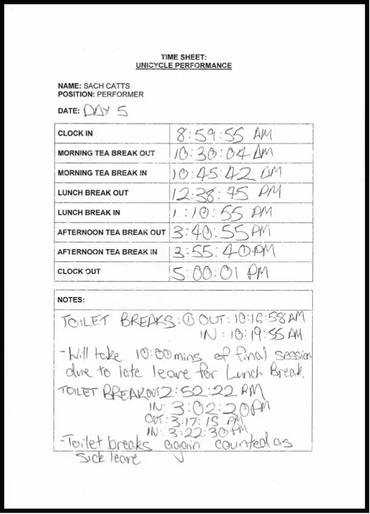 TIME SHEET:
UNICYCLE PERFORMANCE
NAME: SACH CATTS
POSITION: PERFORMER
DATE: DAY 5
CLOCK IN 8:59:55 AM
MORNING TEA BREAK OUT 10:30:04 AM
MORNING TEA BREAK IN 10:45:42 AM
LUNCH BREAK OUT 12:38:45 PM
LUNCH BREAK IN 1:10:55 PM
AFTERNOON TEA BREAK OUT 3:40:55 PM
AFTERNOON TEA BREAK IN 3:55:40 PM
CLOCK OUT 5:00:01 PM
NOTES:
TOILET BREAKS: ① OUT: 10:16:58 AM
IN: 10:19:55 AM
- Will take 10:00 mins of final session
due to late leave for Lunch Break.
TOILET BREAK OUT 2:52:22 PM
IN: 3:02:20 PM
OUT: 3:17:15 PM
IN: 3:22:30 PM
- Toilet breaks again counted as
sick leave